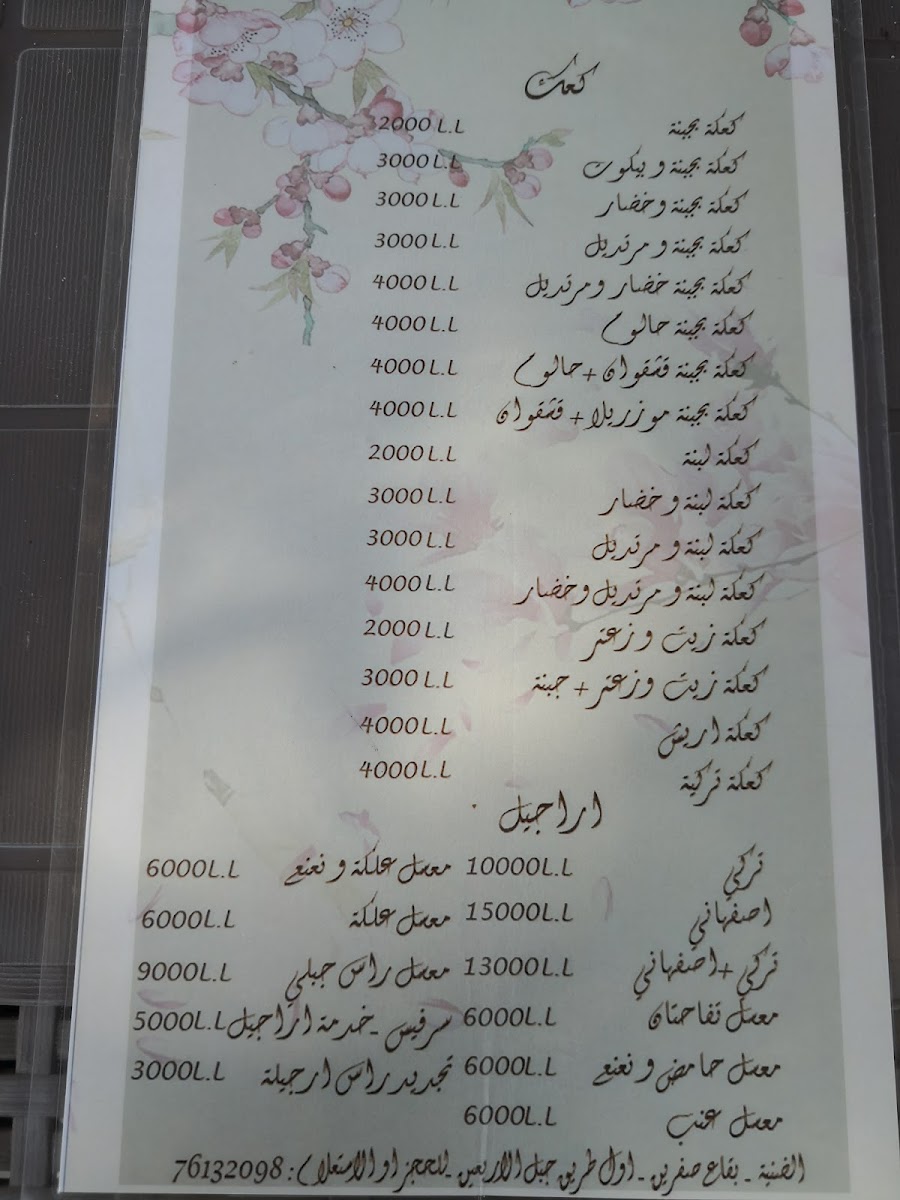 كعك
كعكة بجبنة 2000 L.L
كعكة بجبنة و بيكون 3000 L.L
كعكة بجبنة وخضار 3000 L.L
كعكة بجبنة و مرتديل 3000 L.L
كعكة بجبنة خضار ومرتديل 4000 L.L
كعكة بجبنة حالوم 4000 L.L
كعكة بجبنة قشقوان + حالوم 4000 L.L
كعكة بجبنة موزريلا + قشقوان 4000 L.L
كعكة لبنة 2000 L.L
كعكة لبنة و خضار 3000 L.L
كعكة لبنة و مرتديل 3000 L.L
كعكة لبنة و مرتديل وخضار 4000 L.L
كعكة زيت وزعتر 2000 L.L
كعكة زيت وزعتر + جبنة 3000 L.L
كعكة اريش 4000 L.L
كعكة تركية 4000 L.L
اراجيل
تركي 10000L.L معسل علكة و نعنع 6000L.L
اصفهاني 15000L.L معسل علكة 6000L.L
تركي + اصفهاني 13000L.L معسل راس جبلي 9000L.L
معسل تفاحتان 6000L.L سرفيس - خدمة اراجيل 5000L.L
معسل حامض و نعنع 6000L.L تجديد راس ارجيلة 3000L.L
معسل عنب 6000L.L
الضنية - بقاع صفرين - اول طريق جبل الاربعين - للحجز او الاستعلام : 76132098